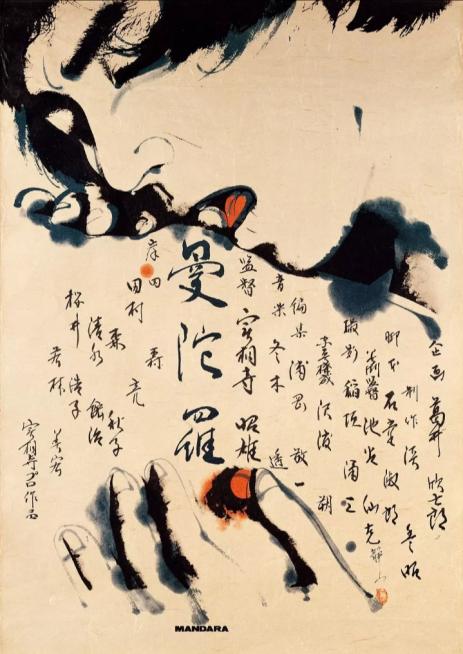 企画 葛井 欣士郎
制作 淡 豊昭
脚本 石堂 淑朗
池谷 仙克
撮影 稲垣 涌三
編集 浦岡 敬一
音楽 冬木 透
監督 実相寺 昭雄
曼陀羅
岸田 森
田村 亮
清水 紘治
桜井 浩子
秋子
若林 美宏
実相寺プロ作品
MANDARA